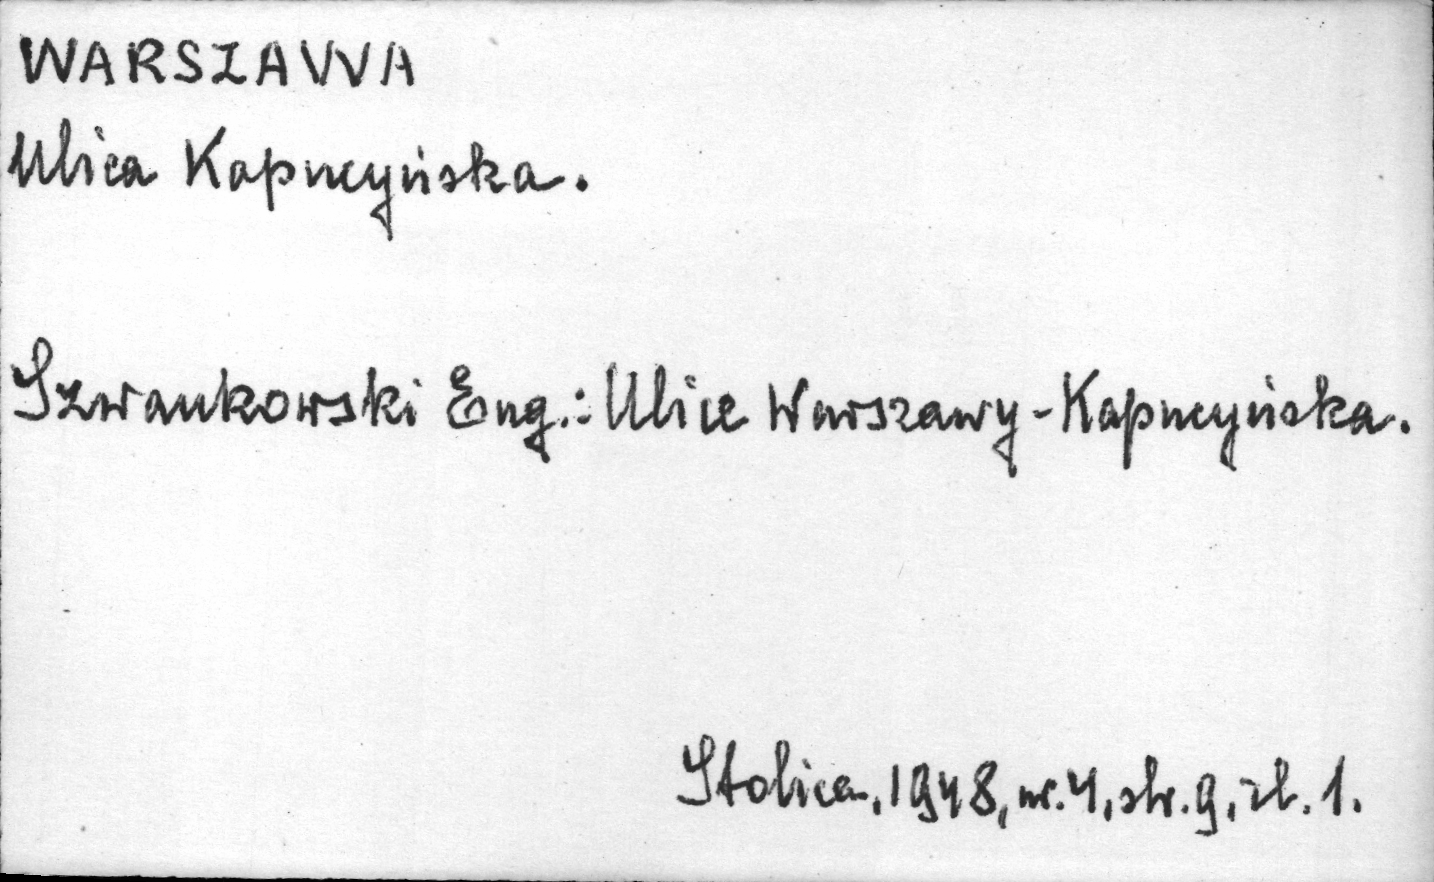 WARSZAWA
Ulica Kapucyńska.
Szwankowski Eug.: Ulice Warszawy - Kapucyńska.
Stolica, 1948, nr. 4, str. 9, il. 1.